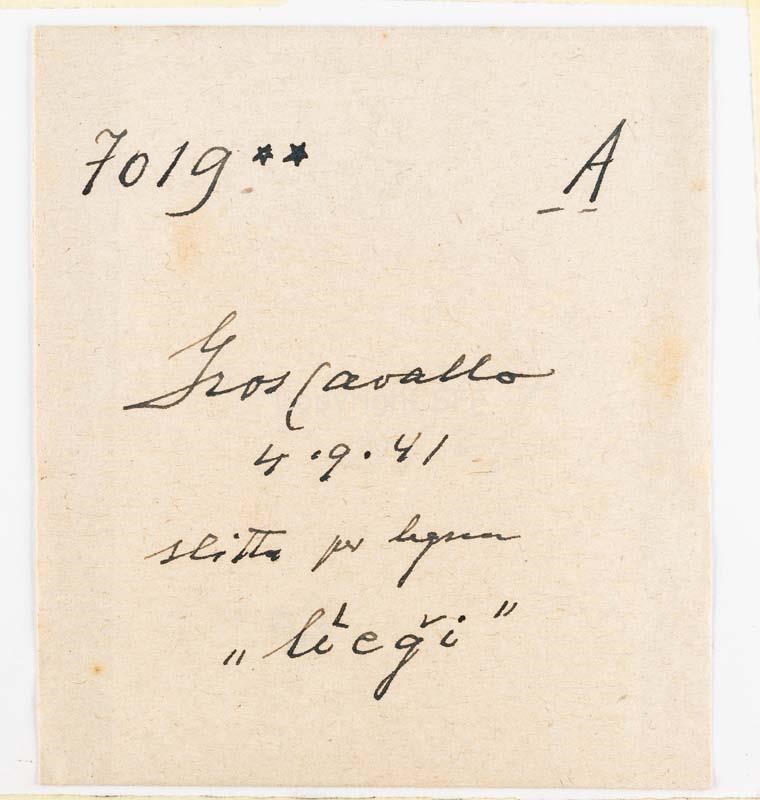 7019** A
Groscavallo
4.9.41
slitta per legna
„lìeǧi"